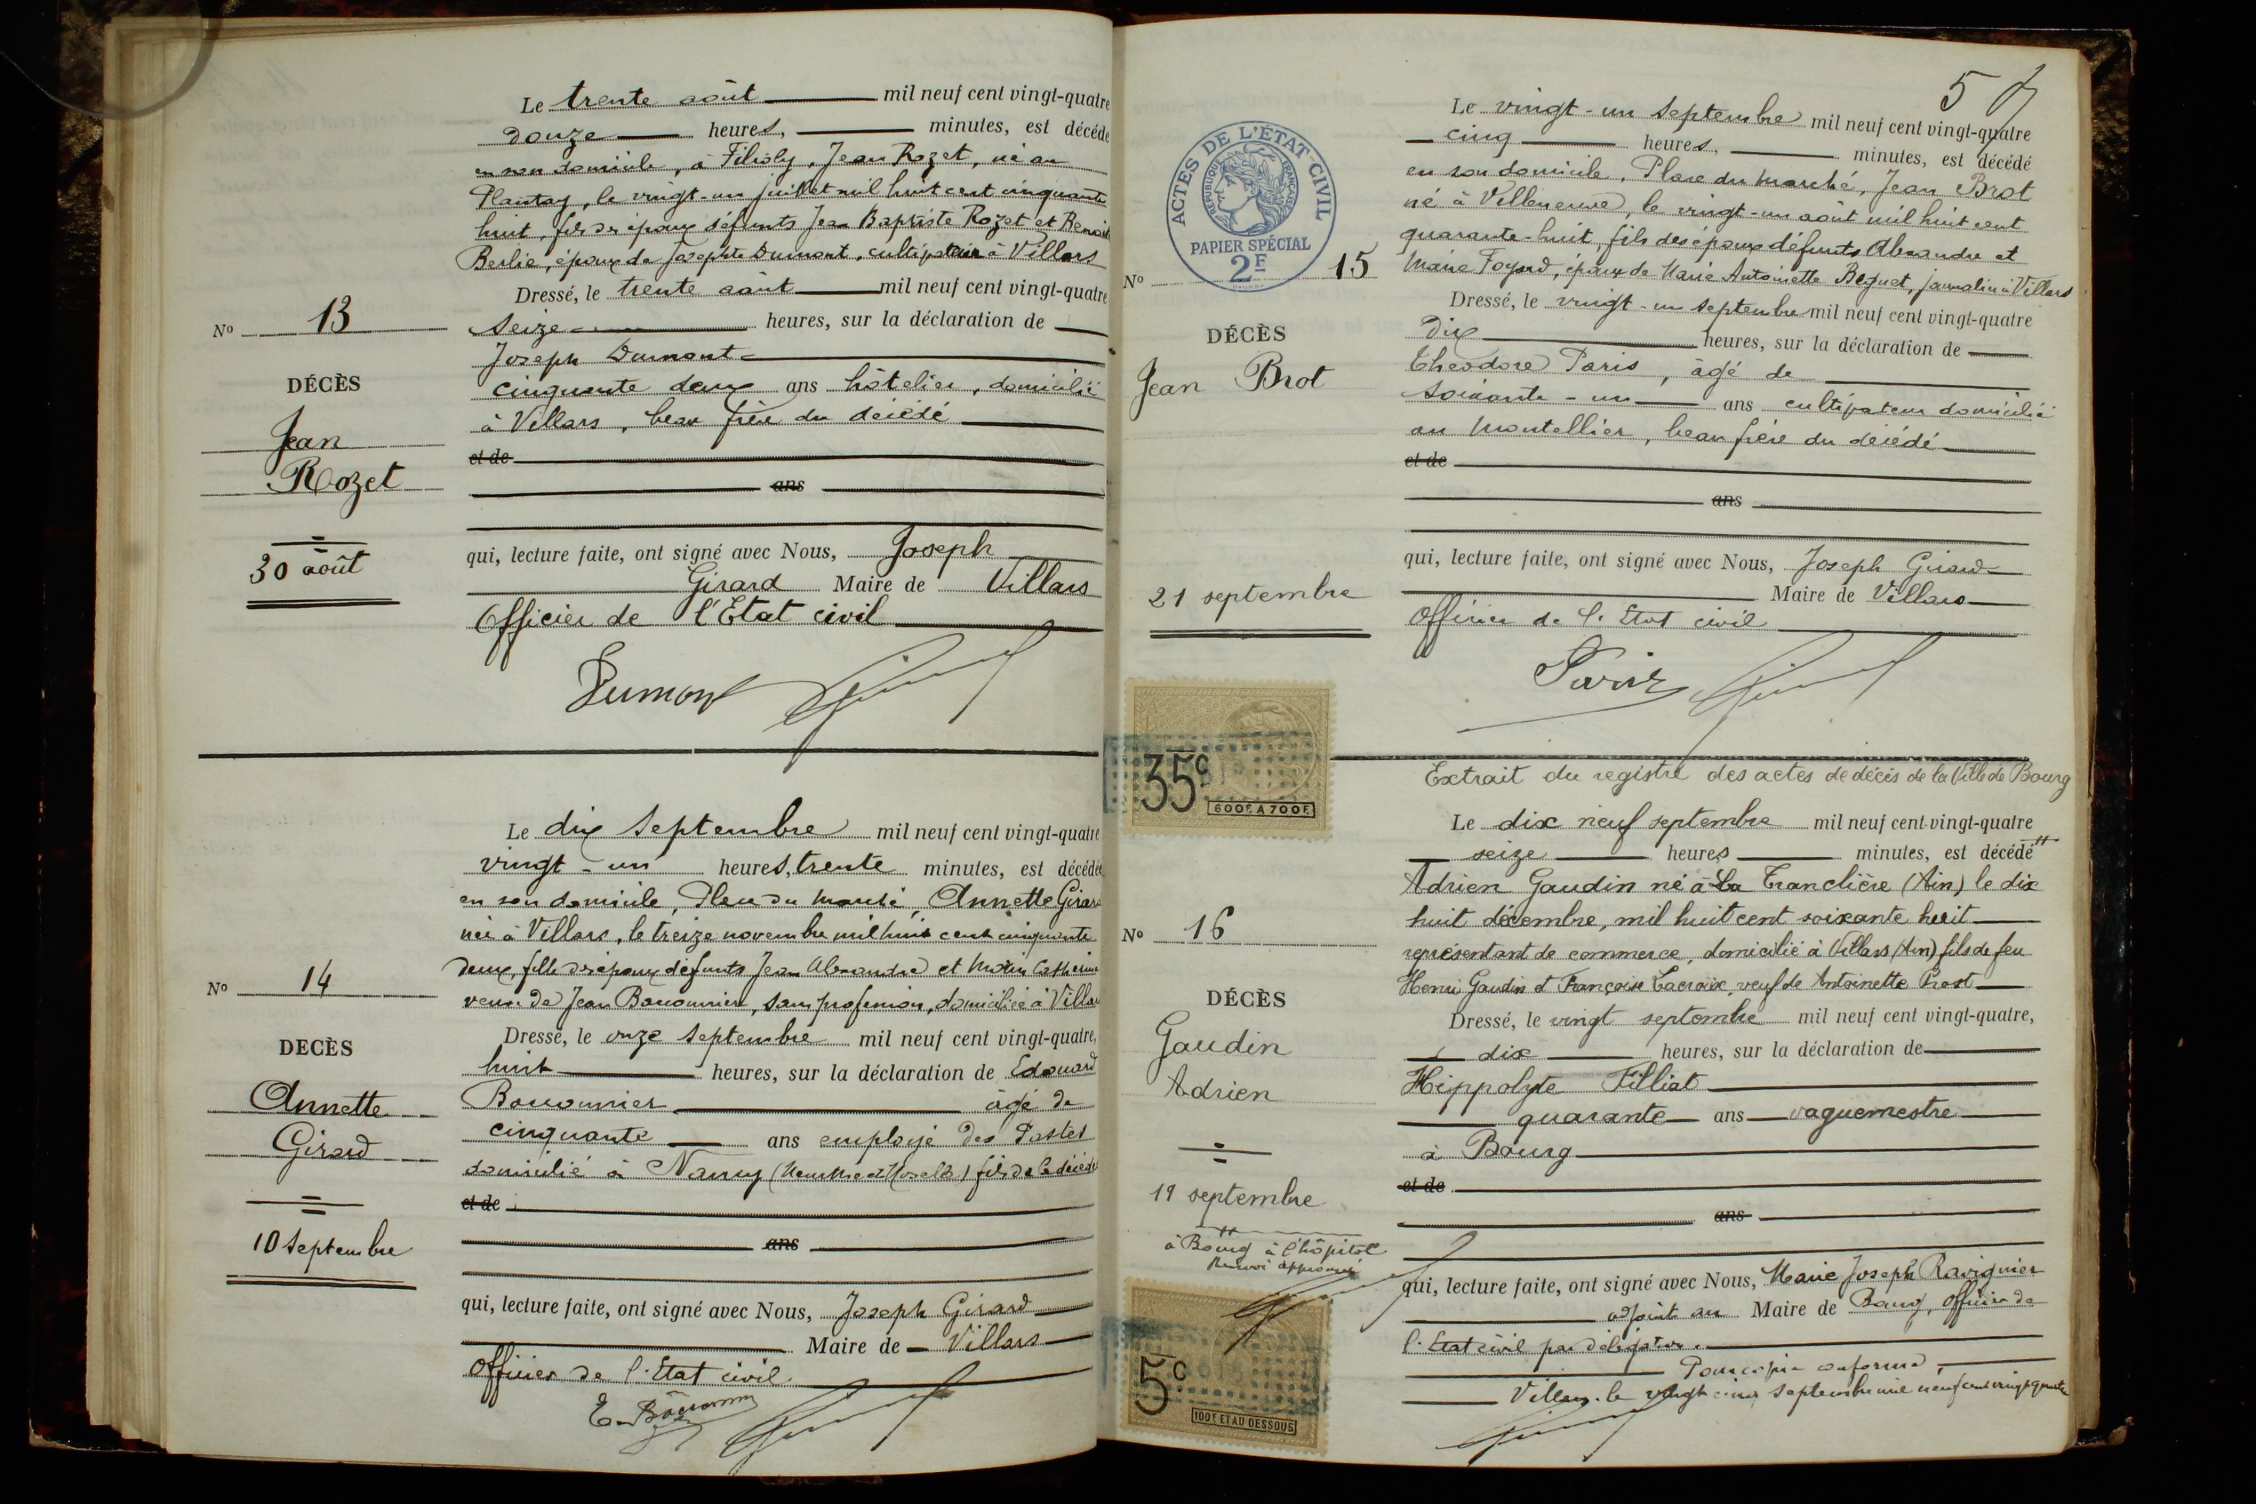 Le trente août mil neuf cent vingt-quatre
douze heures, minutes, est décédé
en son domicile, à Filioly, Jean Rozet, né au
Plantay, le vingt-un juillet mil huit cent cinquante
huit, fils des époux défunts Jean Baptiste Rozet et Benoite
Berlie, époux de Josephte Dumont, cultivateur à Villars
Dressé, le trente août mil neuf cent vingt-quatre
seize heures, sur la déclaration de
Joseph Dumont
cinquante deux ans hôtelier, domicilié
à Villars, beau frère du décédé
et de
ans
qui, lecture faite, ont signé avec Nous, Joseph
Girard Maire de Villars
Officier de l'Etat civil
Dumont
No 13
DÉCÈS
Jean
Rozet
30 août
Le dix septembre mil neuf cent vingt-quatre
vingt-un heures, trente minutes, est décédée
en son domicile, Place du Marché, Annette Girard
née à Villars, le treize novembre mil huit cent cinquante
deux, fille des époux défunts Jean Alexandre et Morin Catherine
veuve de Jean Bouvonnier, sans profession, domiciliée à Villars
Dressé, le onze septembre mil neuf cent vingt-quatre,
huit heures, sur la déclaration de Edouard
âgé de
cinquante ans employé des Postes
domicilié à Nancy (Meurthe et Moselle) fils de la décédée
et de
ans
qui, lecture faite, ont signé avec Nous, Joseph Girard
Maire de Villars
Officier de l'Etat civil.
No 14
DECÈS
Annette
Girard
10 septembre
5
ACTES DE L'ÉTAT CIVIL
RÉPUBLIQUE FRANÇAISE
PAPIER SPÉCIAL
2F
Le vingt-un septembre mil neuf cent vingt-quatre
cinq heures, minutes, est décédé
en son domicile, Place du Marché, Jean Brot
né à Villeneuve, le vingt-un août mil huit cent
quarante-huit, fils des époux défunts Alexandre et
Marie Foyard, époux de Marie Antoinette Béguet, journalier à Villars
Dressé, le vingt-un septembre mil neuf cent vingt-quatre
Dix heures, sur la déclaration de
Théodore Paris, âgé de
soixante-un ans cultivateur domicilié
au Montellier, beau frère du décédé
et de
ans
qui, lecture faite, ont signé avec Nous, Joseph Girard
Maire de Villars
Officier de l'Etat civil
Paris
No 15
DÉCÈS
Jean Brot
21 septembre
35c
600F A 700F
Extrait du registre des actes de décès de la Ville de Bourg
Le dix neuf septembre mil neuf cent vingt-quatre
seize heures minutes, est décédé #
Adrien Gaudin né à La Tranclière (Ain) le dix
huit décembre, mil huit cent soixante huit
représentant de commerce, domicilié à Villars (Ain) fils de feu
Henri Gaudin et Françoise Lacroix, veuf de Antoinette Prost
Dressé, le vingt septembre mil neuf cent vingt-quatre,
dix heures, sur la déclaration de
Hippolyte Filliat
quarante ans vaguemestre
à Bourg
et de
ans
qui, lecture faite, ont signé avec Nous, Marie Joseph Ravignier
adjoint au Maire de Bourg, officier de
l'Etat civil par délégation.
Pour copie conforme,
Villars, le vingt cinq septembre mil neuf cent vingt quatre
No 16
DÉCÈS
Gaudin
Adrien
19 septembre
# à Bourg à l'hôpital
Renvoi approuvé
5c
100F ET AU DESSOUS